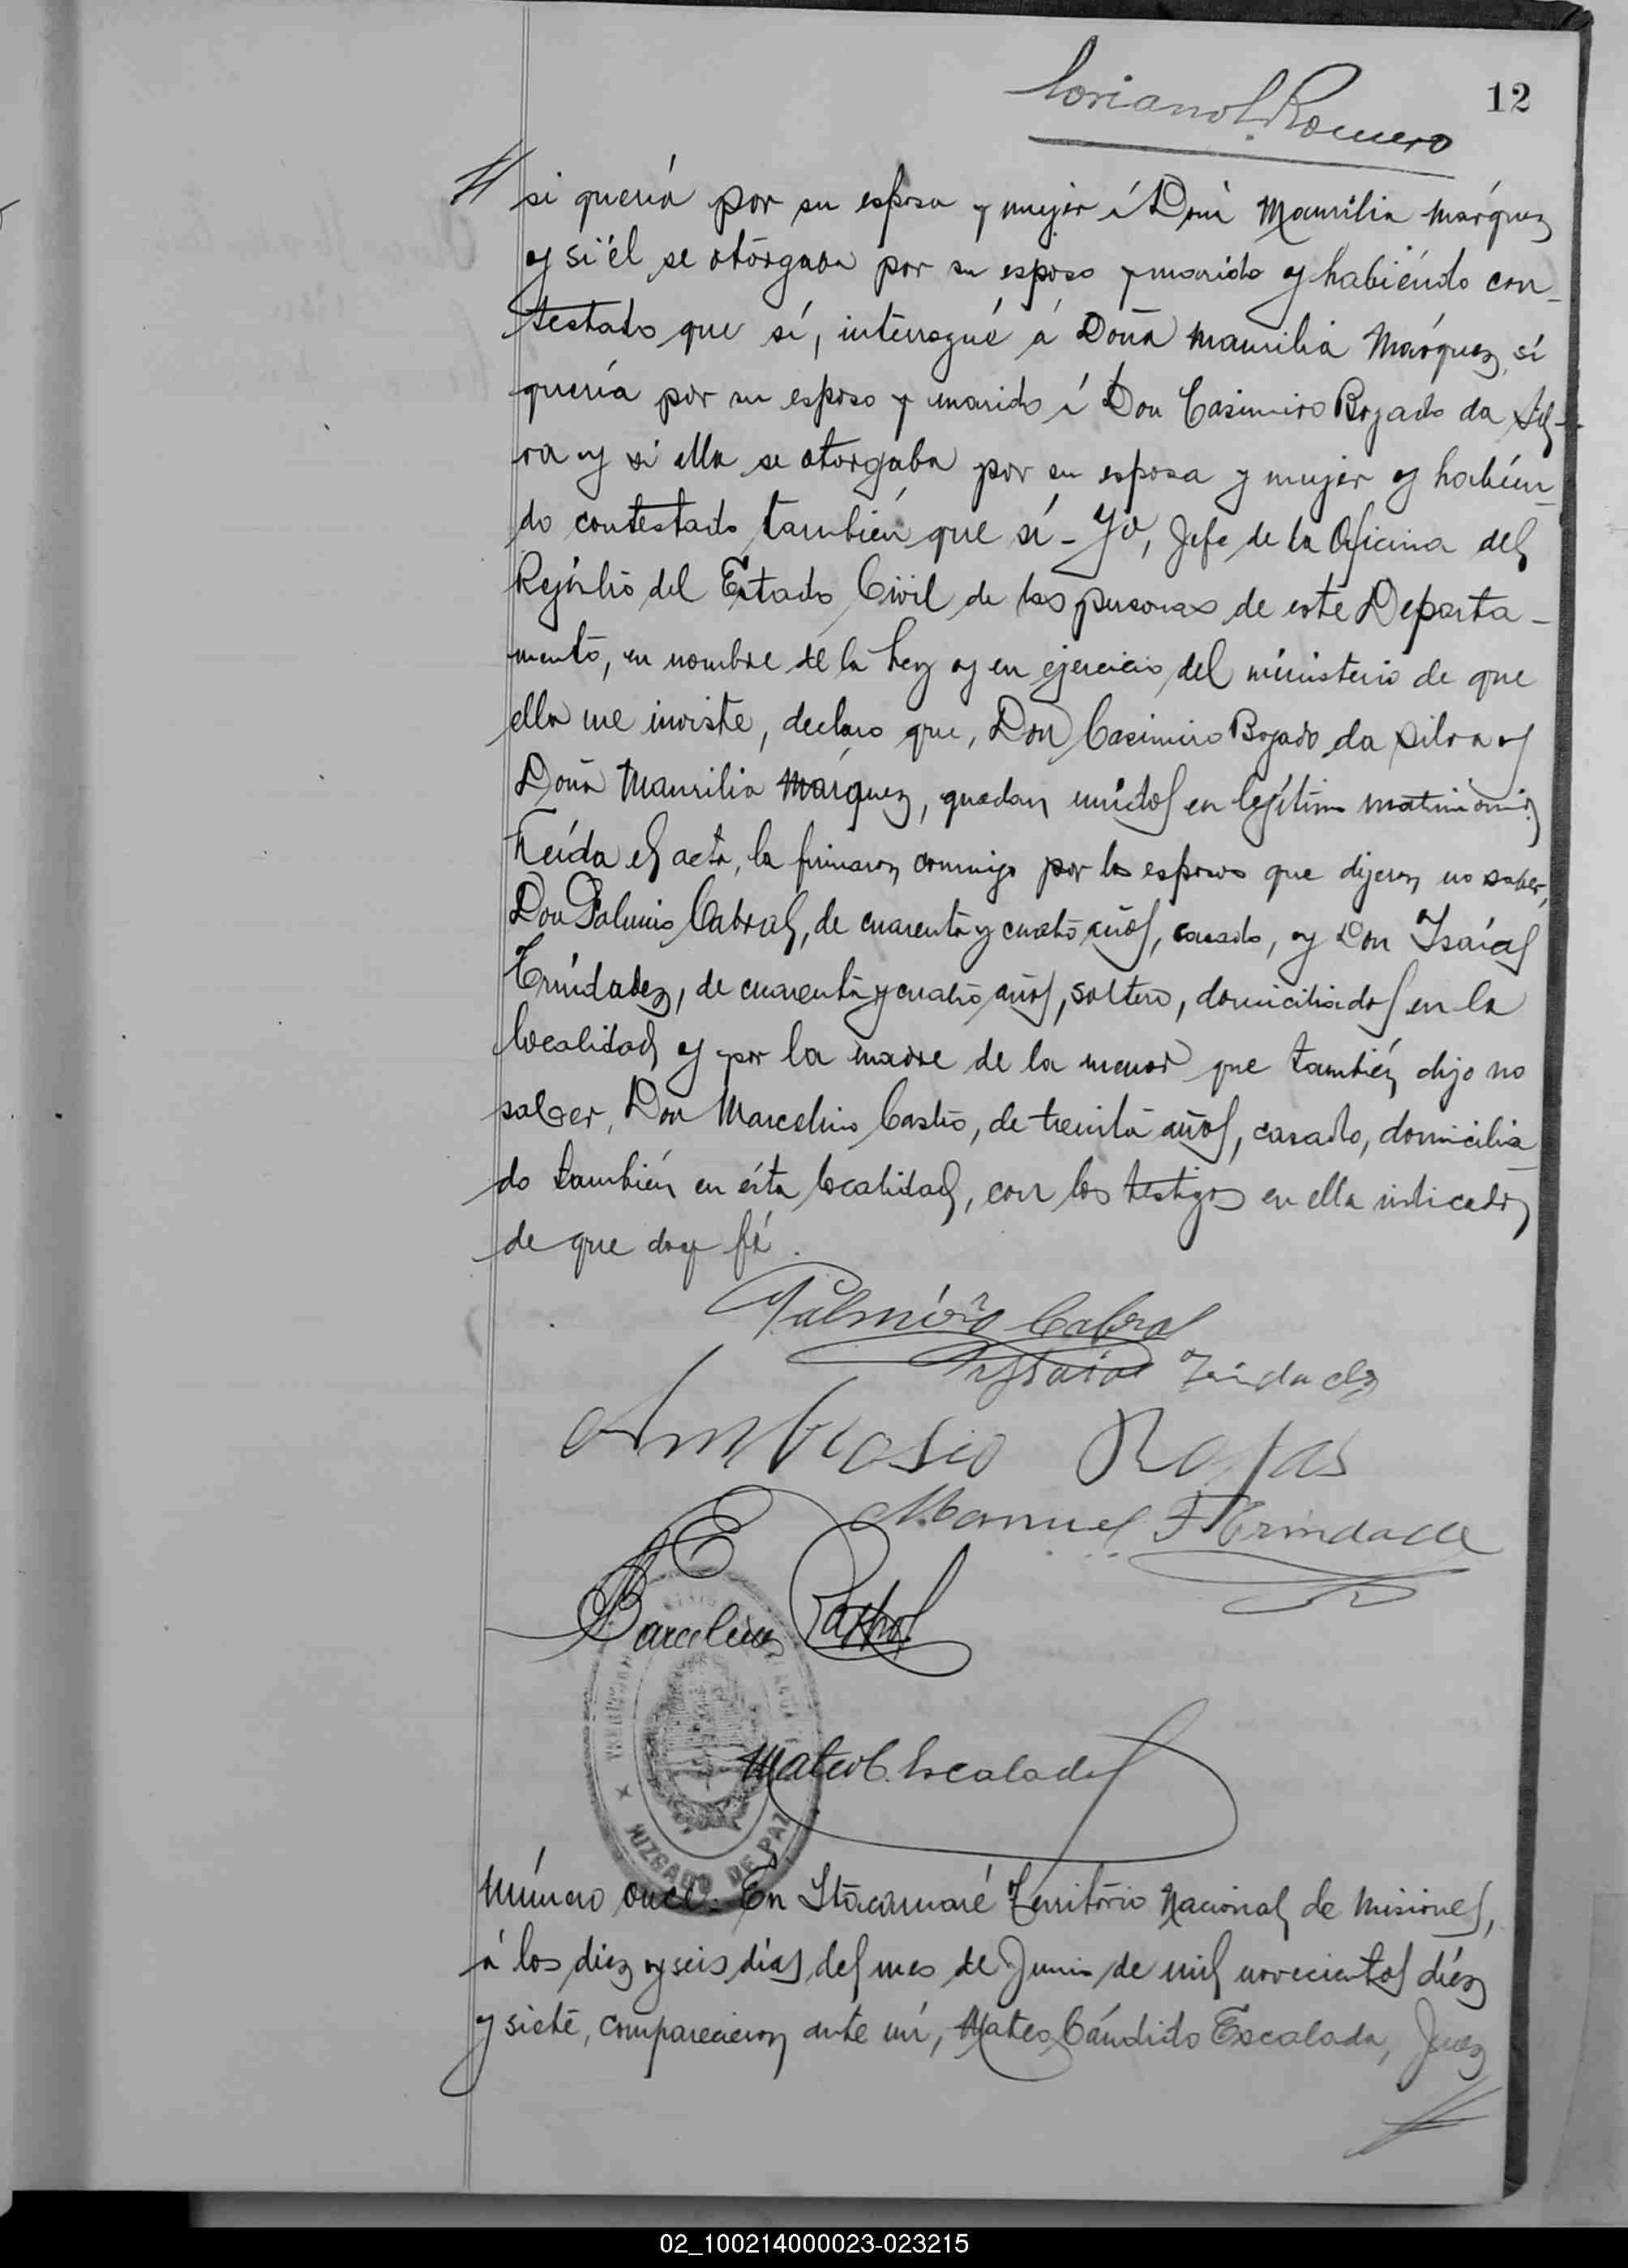 Loriano L. Romero
12
si quería por su esposa y mujer á Doña Maurilia Márquez
y si él se otorgaba por su esposo y marido y habiéndo con-
testado que sí, interrogué á Doña Maurilia Márquez, si
quería por su esposo y marido á Don Casimiro Bogado da Sil-
va y si ella se otorgaba por su esposa y mujer y habién-
do contestado también que sí - Yo, Jefe de la Oficina del
Rejistro del Estado Civil de las personas de este Departa-
mento, en nombre de la Ley y en ejercicio del ministerio de que
ella me inviste, declaro que, Don Casimiro Bogado da Silva y
Doña Maurilia Márquez, quedan unidos en legítimo matrimonio.
Leída el acta, la firmaron conmigo por los esposos que dijeron no saber,
Don Palmiro Cabral, de cuarenta y cuatro años, casado, y Don Isaías
Trindadez, de cuarenta y cuatro años, soltero, domiciliados en la
localidad y por la madre de la menor que también dijo no
saber, Don Marcelino Castro, de treinta años, casado, domicilia-
do también en ésta localidad, con los testigos en ella indicados
de que doy fé.
Palmiro Cabral
Issaias Trindadez
Ambrosio Rojas
Manuel F Trindade
Marcelino Castro
JUZGADO DE PAZ
Mateo C. Escalada
Número once. En Itacaruaré Territorio Nacional de Misiones,
á los diez y seis días del mes de Junio de mil novecientos diéz
y siete, comparecieron ante mí, Mateo Cándido Escalada, Juez
02_100214000023-023215